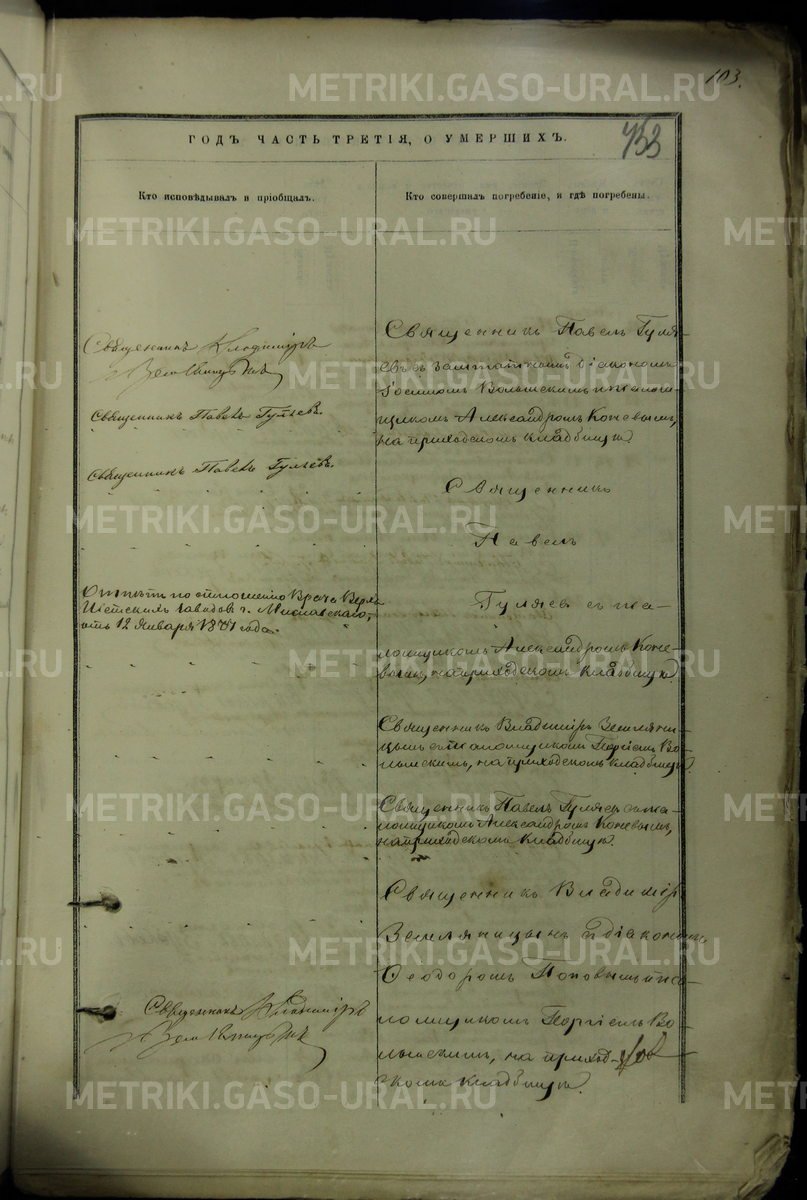 103.
ГОДЪ ЧАСТЬ ТРЕТІЯ, О УМЕРШИХЪ.
Кто исповѣдывалъ и пріобщалъ.
Кто совершалъ погребеніе, и гдѣ погребены.
Священникъ Владиміръ
Земляницынъ
Священникъ Павелъ Гуляевъ.
Священникъ Павелъ Гуляевъ.
Отпѣтъ по отношенію Врача Верхъ
Исетскихъ заводовъ г. Миславскаго,
отъ 12 Января 1881 года.
Священникъ Владиміръ
Земляницынъ
Священникъ Павелъ Гуля-
евъ съ заштатнымъ діакономъ
Волынскимъ и псалом-
щикомъ Александромъ Коневымъ,
на приходскомъ кладбищѣ.
Священникъ
Павелъ
Гуляевъ съ пса-
ломщикомъ Александромъ Коне-
вымъ, на приходскомъ кладбищѣ
Священникъ Владиміръ Земляни-
цынъ съ псаломщикомъ Георгіемъ Во-
лынскимъ, на приходскомъ кладбищѣ.
Священникъ Павелъ Гуляевъ съ пса-
ломщикомъ Александромъ Коневымъ,
на приходскомъ кладбищѣ.
Священникъ Владиміръ
Земляницынъ съ діакономъ
Ѳеодоромъ Поповымъ и пса-
ломщикомъ Георгіемъ Во-
лынскимъ, на приход-
скомъ кладбищѣ.
METRIKI.GASO-URAL.RU